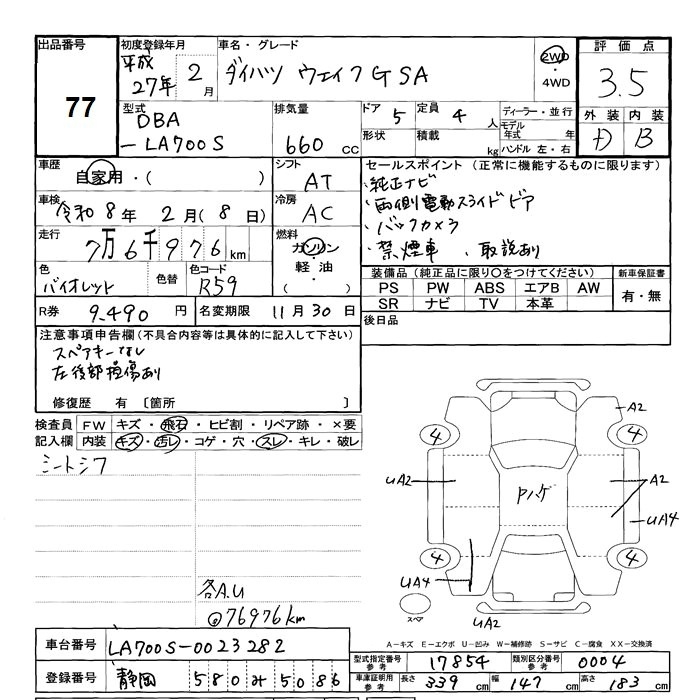 出品番号
77
初度登録年月
平成
27年 2月
車名・グレード
ダイハツ ウェイク G SA
2WD
・
4WD
評価点
3.5
外装 内装
D B
型式
DBA
-LA700S
排気量
660 cc
ドア 5
定員 4 人
形状
積載 kg
ディーラー・並行
モデル年式 年
ハンドル 左・右
車歴
自家用・( )
シフト
AT
車検
令和8年 2月(8日)
冷房
AC
走行
7万6千976km
燃料
ガソリン
・
軽油
( )
色
バイオレット
色替
色コード
R59
R券 9,490円
名変期限 11月30日
セールスポイント (正常に機能するものに限ります)
・純正ナビ
・両側電動スライドドア
・バックカメラ
・禁煙車 ・取説あり
装備品(純正品に限り○をつけてください)
新車保証書
PS PW ABS エアB AW
SR ナビ TV 本革
有・無
後日品
注意事項申告欄(不具合内容等は具体的に記入して下さい)
スペアキーなし
左後部損傷あり
修復歴 有 〔箇所 〕
検査員記入欄
FW キズ・飛石・ヒビ割・リペア跡・×要
内装 キズ・汚レ・コゲ・穴・スレ・キレ・破レ
シートシワ
各A.U
76976km
A2
4
4
UA2
Pハゲ
A2
UA4
4
4
UA4
スペア
UA2
A-キズ E-エクボ U-凹み W-補修跡 S-サビ C-腐食 XX-交換済
車台番号 LA700S-0023282
登録番号 静岡 580 み 5086
型式指定番号 参考 17854
類別区分番号 参考 0004
車庫証明用 参考 長さ 339cm 幅 147cm 高さ 183cm